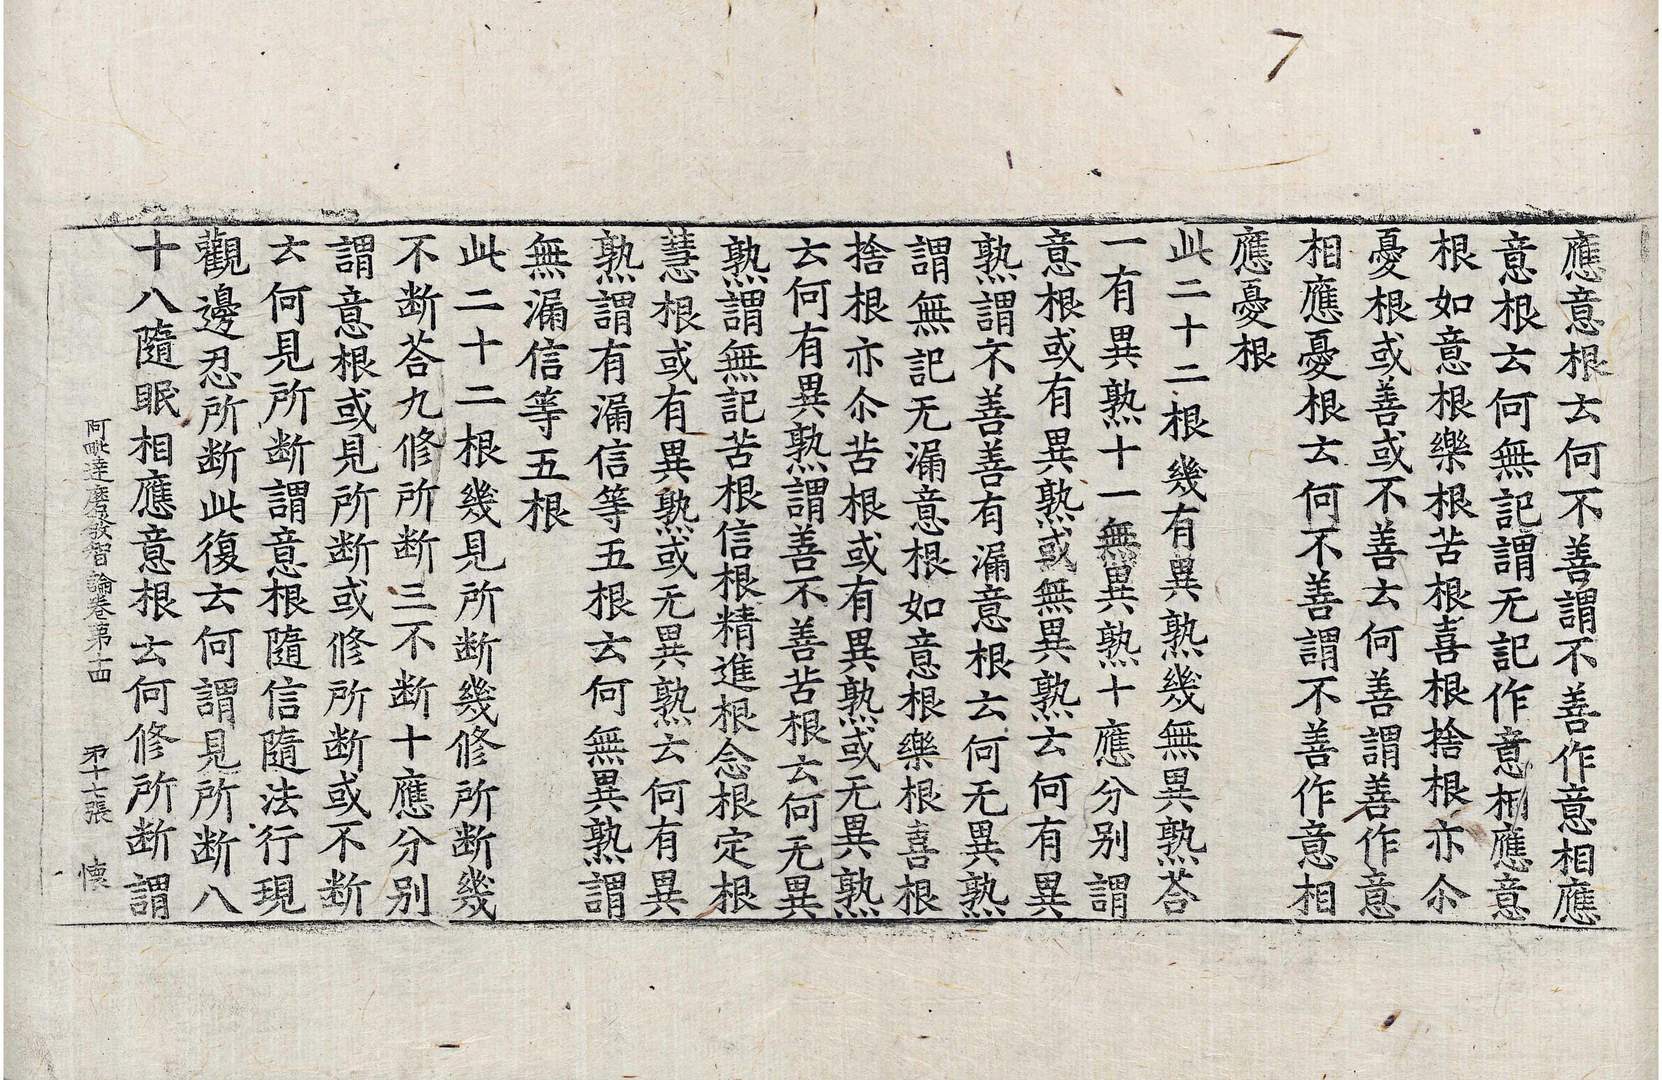 7
應意根云何不善謂不善作意相應
意根云何無記謂无記作意相應意
根如意根樂根苦根喜根捨根亦尒
憂根或善或不善云何善謂善作意
相應憂根云何不善謂不善作意相
應憂根
此二十二根幾有異熟幾無異熟荅
一有異熟十一無異熟十應分别謂
意根或有異熟或無異熟云何有異
熟謂不善善有漏意根云何无異熟
謂無記无漏意根如意根樂根喜根
捨根亦尒苦根或有異熟或无異熟
云何有異熟謂善不善苦根云何无異
熟謂無記苦根信根精進根念根定根
慧根或有異熟或无異熟云何有異
熟謂有漏信等五根云何無異熟謂
無漏信等五根
此二十二根幾見所断幾修所断幾
不断荅九修所断三不断十應分别
謂意根或見所断或修所断或不断
云何見所断謂意根隨信隨法行現
觀邊忍所断此復云何謂見所断八
十八隨眠相應意根云何修所断謂
阿毗達磨發智論卷苐十四 苐十七張 懐